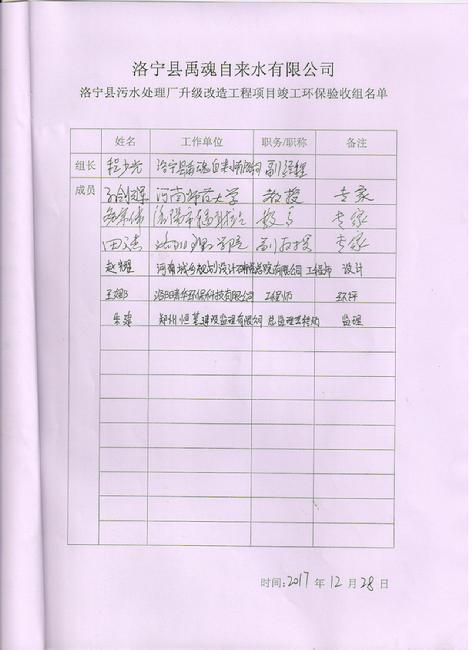 洛宁县禹魂自来水有限公司
洛宁县污水处理厂升级改造工程项目竣工环保验收组名单
姓名 工作单位 职务/职称 备注
组长 程少光 洛宁县禹魂自来水有限公司 副经理
成员 河南师范大学 教授 专家
洛阳市 专家
洛阳理工学院 副教授 专家
赵耀 河南城乡规划设计研究总院有限公司 工程师 设计
王娜 洛阳青华环保科技有限公司 工程师 环评
朱 郑州恒基建设监理有限公司 总监理 监理
时间:2017 年 12 月 28 日